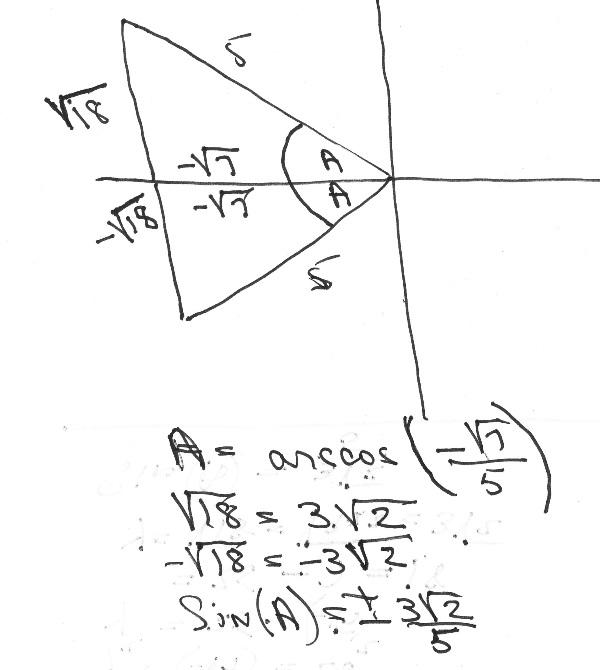 5
√18
-√7 A
-√7 A
-√18
5
A = arccos(-√7/5)
√18 = 3√2
-√18 = -3√2
Sin(A) = ± 3√2/5